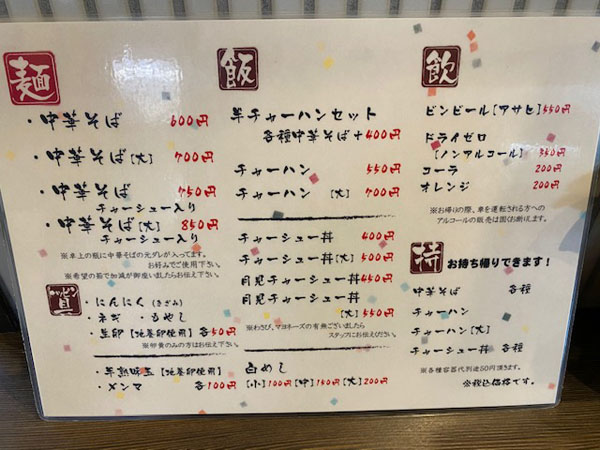 麺
・中華そば 600円
・中華そば[大] 700円
・中華そば 750円
チャーシュー入り
・中華そば[大] 850円
チャーシュー入り
※卓上の瓶に中華そばの元ダレが入ってます。
お好みでご使用下さい。
※希望の茹で加減が御座いましたらお伝え下さい。
トッピング
・にんにく(きざみ)
・ネギ ・もやし
・生卵[地養卵使用] 各50円
※卵黄のみの方はお伝え下さい。
・半熟味玉[地養卵使用]
・メンマ 各100円
飯
半チャーハンセット
各種中華そば+400円
チャーハン 550円
チャーハン [大] 700円
チャーシュー丼 400円
チャーシュー丼[大] 500円
月見チャーシュー丼 450円
月見チャーシュー丼
[大] 550円
※わさび、マヨネーズの有無ございましたら
スタッフにお伝えください。
白めし
[小]100円[中]150円[大]200円
飲
ビンビール[アサヒ]550円
ドライゼロ
[ノンアルコール] 350円
コーラ 200円
オレンジ 200円
※お帰りの際、車を運転される方への
アルコールの販売は固くお断りします。
持
お持ち帰りできます!
中華そば 各種
チャーハン
チャーハン[大]
チャーシュー丼 各種
※各種容器代別途50円頂きます。
※税込価格です。